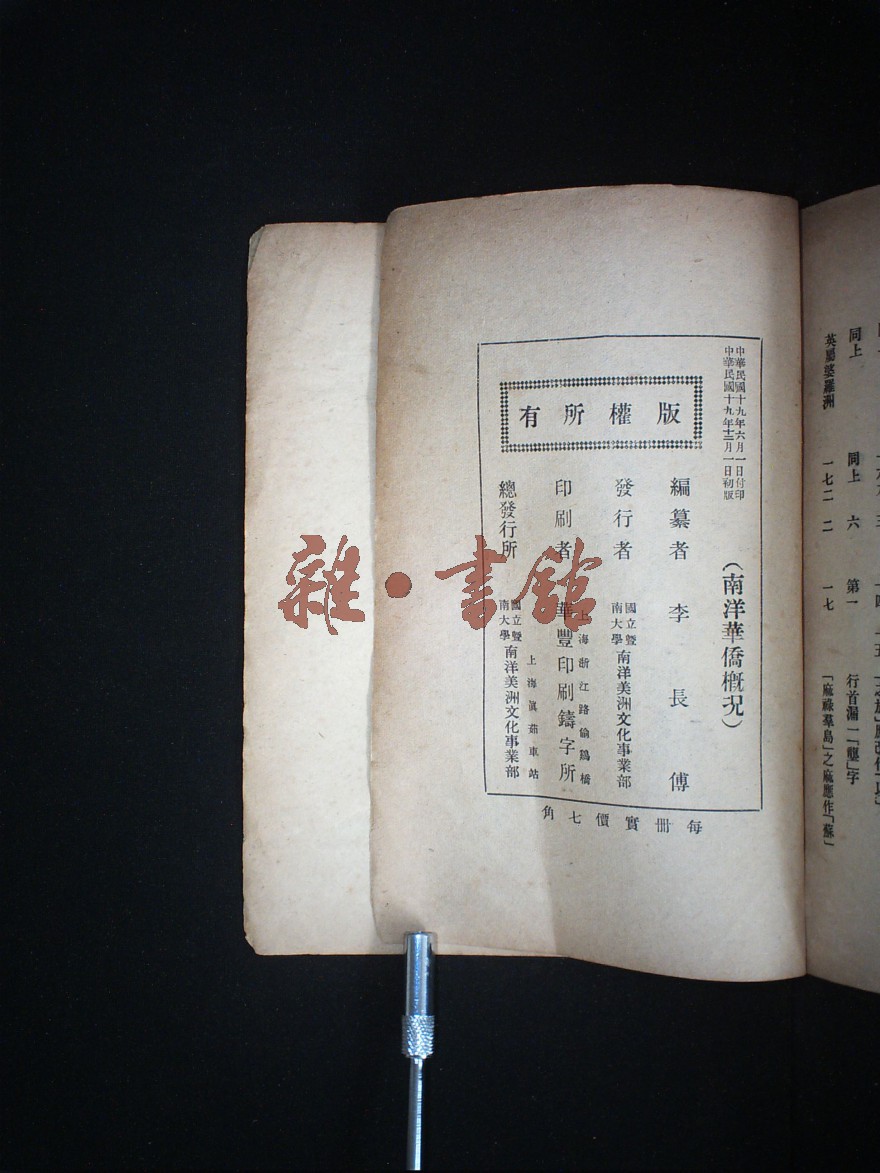 英屬婆羅洲 一七二 二 一七 「麻祿羣島」之麻應作「蘇」
同上 同上 六 第一 行首漏一「龔」字
中華民國十九年六月一日付印
中華民國十九年十二月一日初版
(南洋華僑概況)
版權所有
編纂者 李長傅
發行者 國立暨南大學 南洋美洲文化事業部
印刷者 華豐印刷鑄字所
上海浙江路偷鷄橋
總發行所 國立暨南大學 南洋美洲文化事業部
上海滇茹車站
每冊實價七角
雜·書館